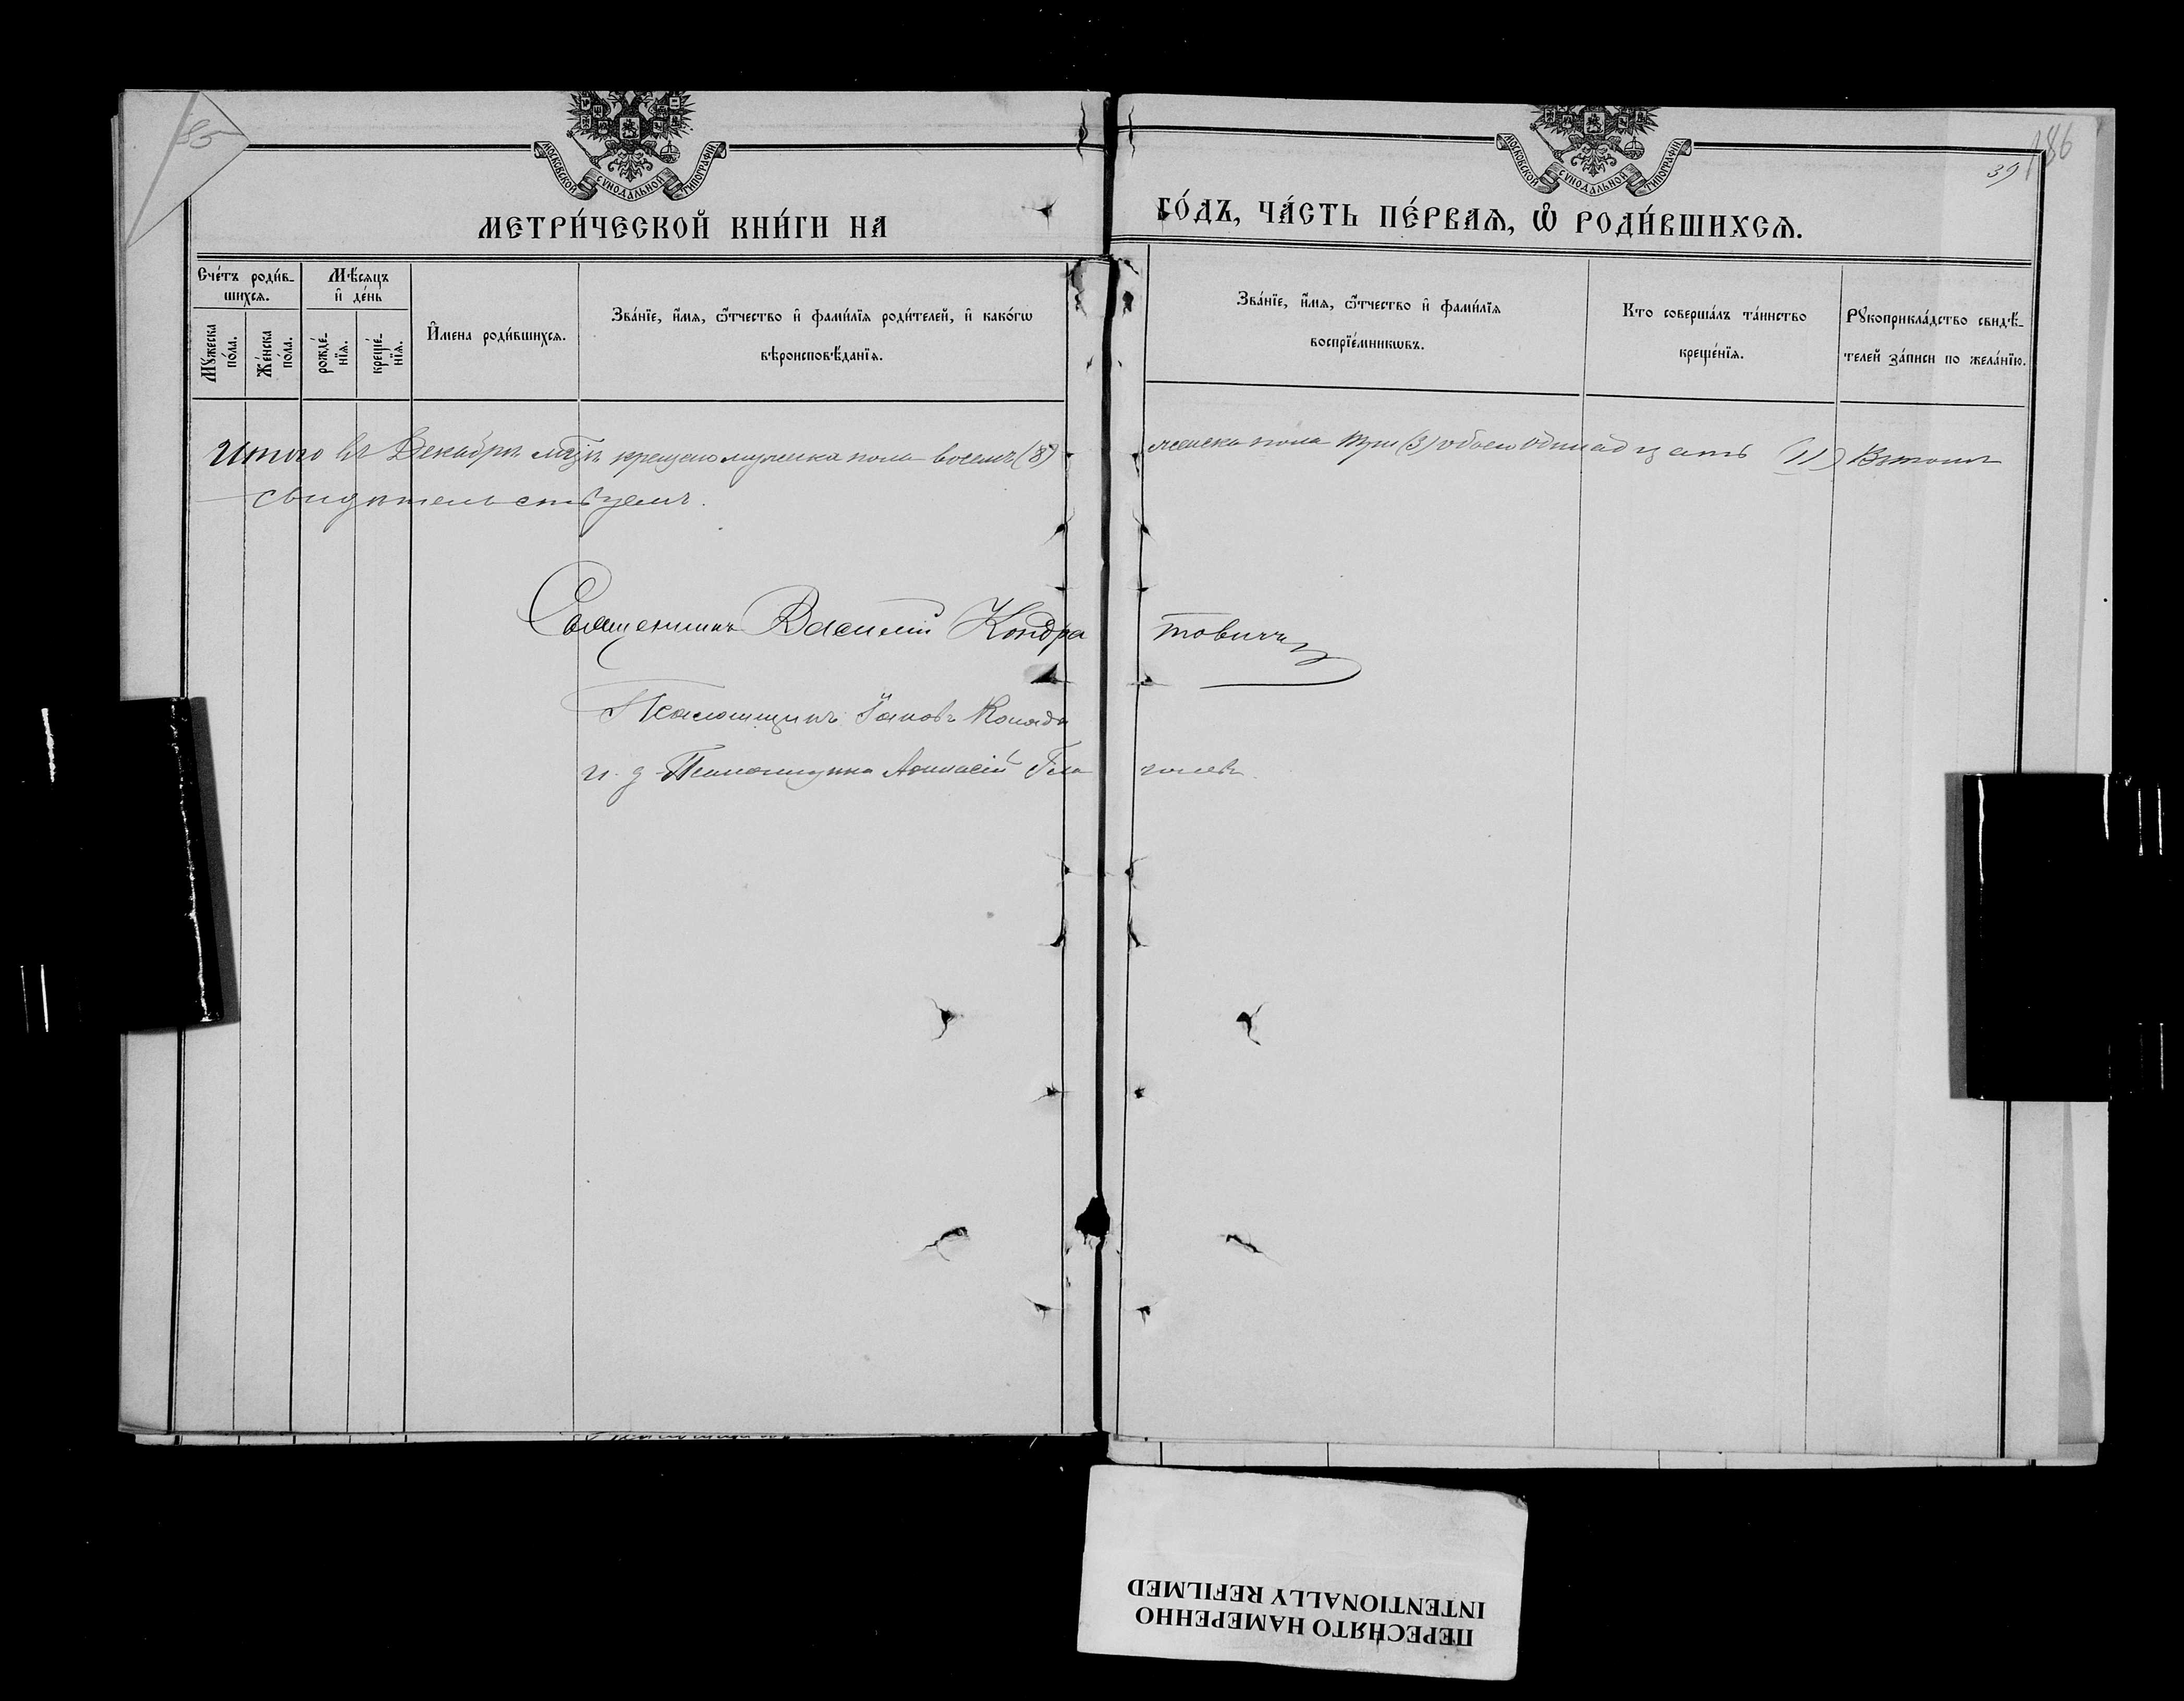 85
186
39
МОСКОВСКОЙ СѴНОДАЛЬНОЙ ТИПОГРАФІИ
МОСКОВСКОЙ СѴНОДАЛЬНОЙ ТИПОГРАФІИ
МЕТРИ́ЧЕСКОЙ КНИ́ГИ НА ГО́ДЪ, ЧА́СТЬ ПЕ́РВАѦ, Ѽ РОДИ́ВШИХСѦ.
Сче́тъ роди́в-
шихсѧ.
Мꙋ́жеска
по́ла.
Же́нска
по́ла.
Мѣ́сѧцъ
и҆ де́нь
рожде́-
нїѧ.
креще́-
нїѧ.
И҆мена̀ роди́вшихсѧ.
Зва́нїе, и҆́мѧ, ѻ҆́тчество и҆ фами́лїѧ роди́телей, и҆ како́гѡ
вѣроисповѣ́данїѧ.
Зва́нїе, и҆́мѧ, ѻ҆́тчество и҆ фами́лїѧ
воспрїе́мникѡвъ.
Кто̀ соверша́лъ та́инство
креще́нїѧ.
Рꙋкоприкла́дство свидѣ́-
телей за́писи по жела́нїю.
Итого въ Декабрѣ м҃цѣ крещено мужеска пола восемь (8) женска пола три (3) обоего одинадцать (11) В томъ
свидѣтельствуемъ.
Священникъ Василій Кондратовичъ
Псаломщикъ Іаковъ
и. д. Псаломщика
ПЕРЕСНЯТО НАМЕРЕННО
INTENTIONALLY REFILMED